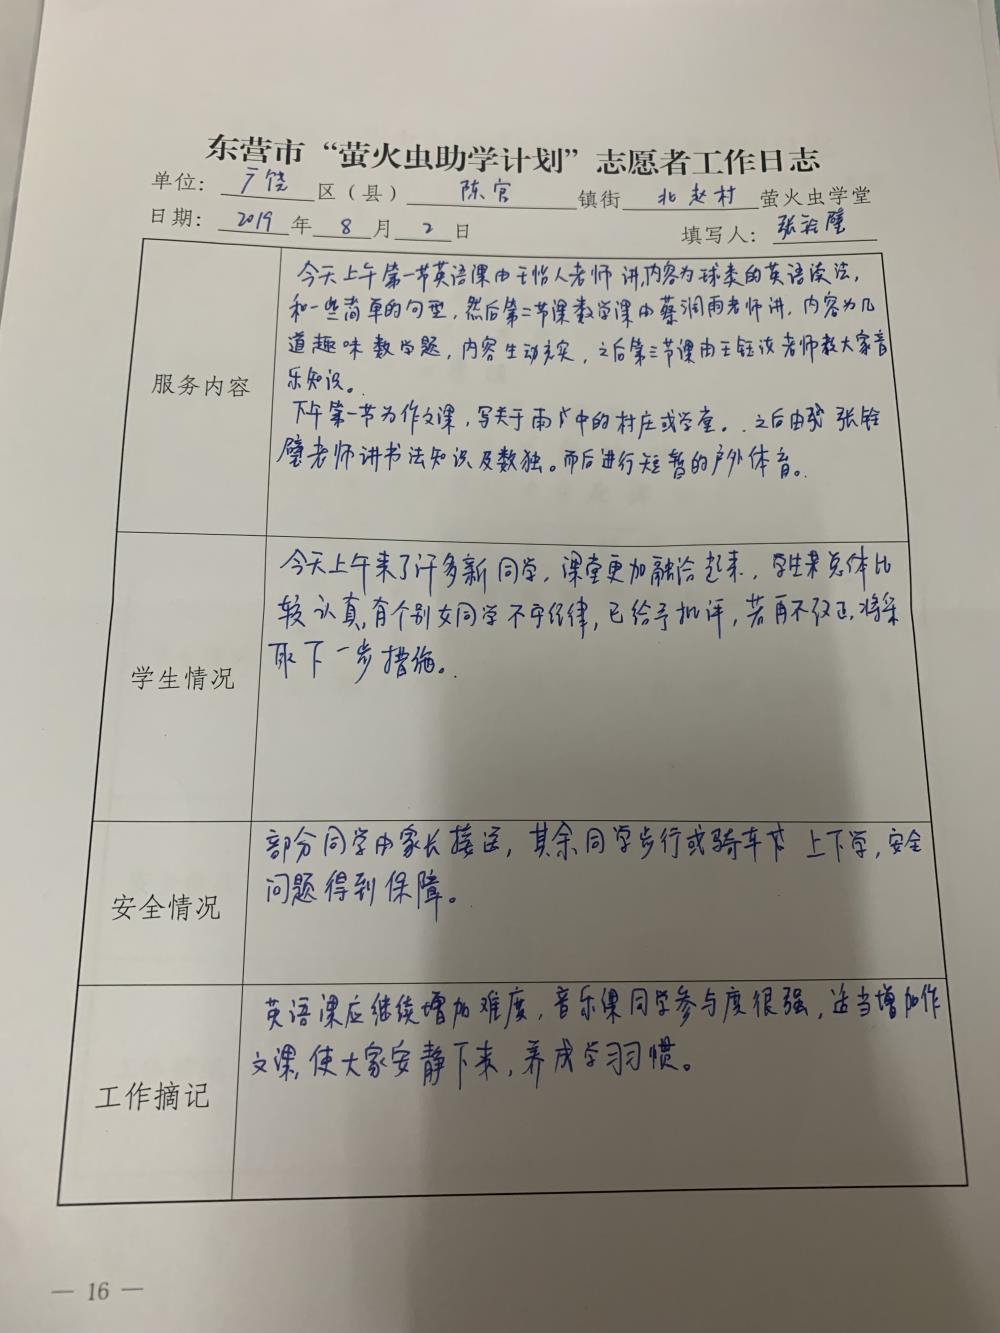 东营市“萤火虫助学计划”志愿者工作日志
单位：广饶区（县）陈官镇街北赵村萤火虫学堂
日期：2019年8月2日 填写人：张铨璧
服务内容
今天上午第一节英语课由王怡人老师讲,内容为球类的英语读法,
和一些简单的句型，然后第二节课数学课由蔡润雨老师讲，内容为几
道趣味数学题，内容生动充实，之后第三节课由王钰 老师教大家音
乐知识。
下午第一节为作文课，写关于雨 中的村庄或学堂。之后由 张铨
璧老师讲书法知识及数独。而后进行短暂的户外体育。
学生情况
今天上午来了许多新同学，课堂更加融洽起来，学生 总体比
较认真,有个别女同学不守纪律，已给予批评，若再不改正,将采
取下一步措施。
安全情况
部分同学由家长接送，其余同学步行或骑车 上下学，安全
问题得到保障。
工作摘记
英语课应继续增加难度，音乐课同学参与度很强，适当增加作
文课,使大家安静下来，养成学习习惯。
— 16 —